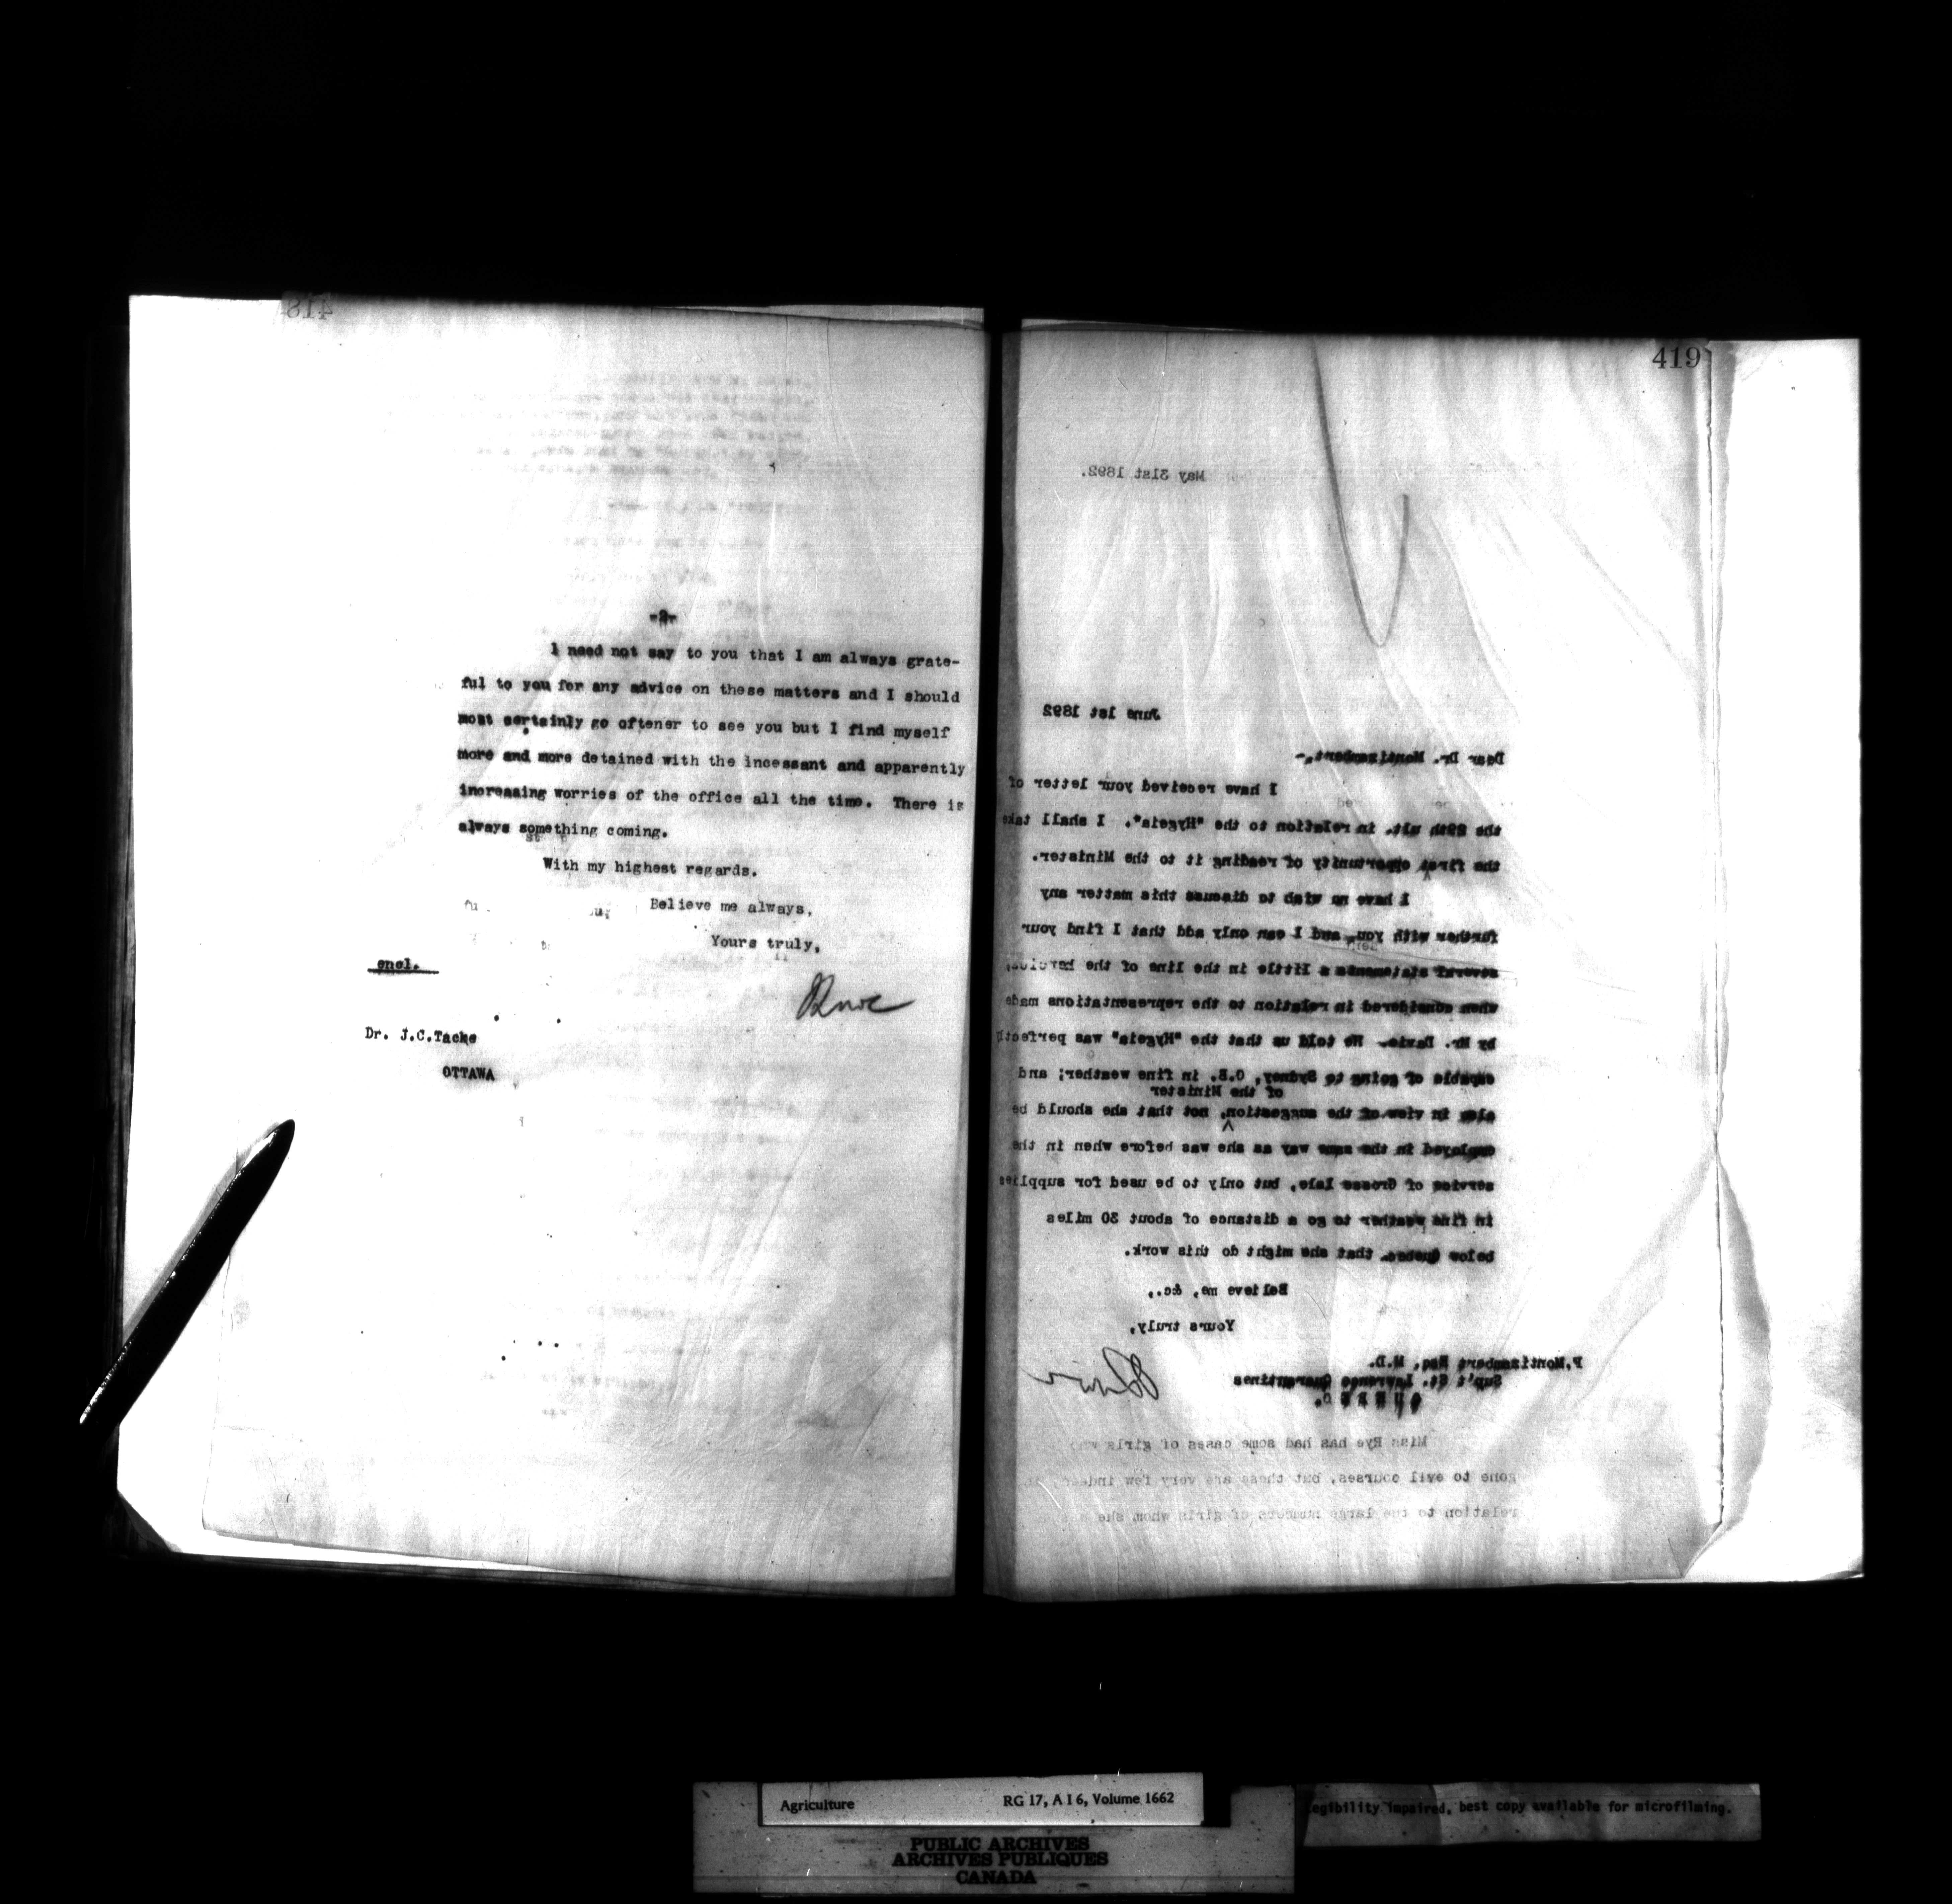 418
-2-
I need not say to you that I am always grate-
ful to you for any advice on these matters and I should
most certainly go oftener to see you but I find myself
more and more detained with the incessant and apparently
increasing worries of the office all the time. There is
always something coming.
With my highest regards.
Believe me always,
Yours truly,
encl.
Dr. J.C.Tache
OTTAWA
419
May 31st 1892.
June 1st 1892
Dear Dr. Montizambert,-
I have received your letter of
the 29th ult. in relation to the "Hygeia". I shall take
the first opportunity of reading it to the Minister.
I have no wish to discuss this matter any
further with you, and I can only add that I find your
several statements a little in the line of the heroics,
when considered in relation to the representations made
by Mr. Davie. He told us that the "Hygeia" was perfectly
capable of going to Sydney, C.B. in fine weather; and
of the Minister
also in view of the suggestion, not that she should be
employed in the same way as she was before when in the
service of Grosse Isle, but only to be used for supplies
in fine weather to go a distance of about 30 miles
below Quebec, that she might do this work.
Believe me, &c.,
Yours truly,
F.Montizambert Esq, M.D.
Sup't St. Lawrence Quarantines
QUEBEC.
Miss Rye has had some cases of girls who
gone to evil courses, but these are very few indeed in
relation to the large numbers of girls whom she
Agriculture RG 17, A I 6, Volume 1662
legibility impaired, best copy available for microfilming.
PUBLIC ARCHIVES
ARCHIVES PUBLIQUES
CANADA